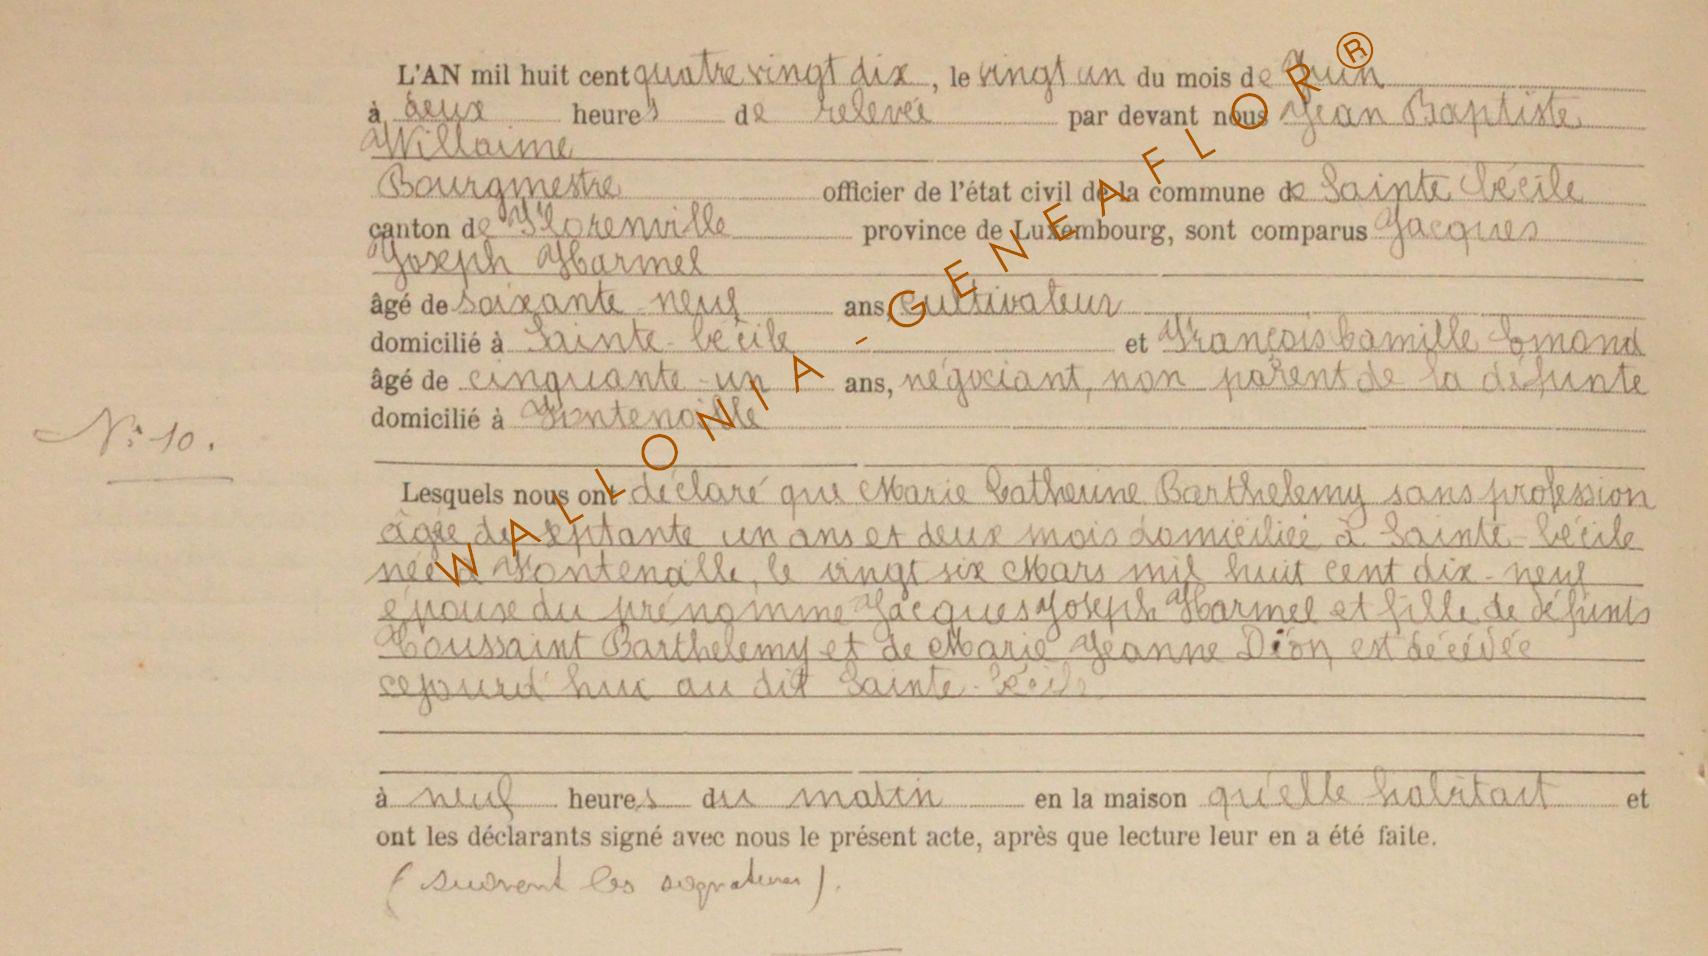 L'AN mil huit cent quatre vingt dix, le vingt un du mois de Juin
à deux heures de relevée par devant nous Jean Baptiste
Willaime
Bourgmestre officier de l'état civil de la commune de Sainte Cécile
canton de Florenville province de Luxembourg, sont comparus Jacques
Joseph Harmel
âgé de soixante-neuf ans, cultivateur
domicilié à Sainte-Cécile et François Camille Emond
âgé de cinquante-un ans, négociant, non parent de la défunte
domicilié à Fontenoille
N° 10.
Lesquels nous ont déclaré que Marie Catherine Barthelemy sans profession
âgée de septante un ans et deux mois domiciliée à Sainte-Cécile
née à Fontenoille, le vingt six Mars mil huit cent dix-neuf
épouse du prénommé Jacques Joseph Harmel et fille de défunts
Toussaint Barthelemy et de Marie Jeanne Dion, est décédée
cejourd'hui au dit Sainte-Cécile
à neuf heures du matin en la maison qu'elle habitait et
ont les déclarants signé avec nous le présent acte, après que lecture leur en a été faite.
(suivent les signatures).
WALLONIA-GENEAFLOR®